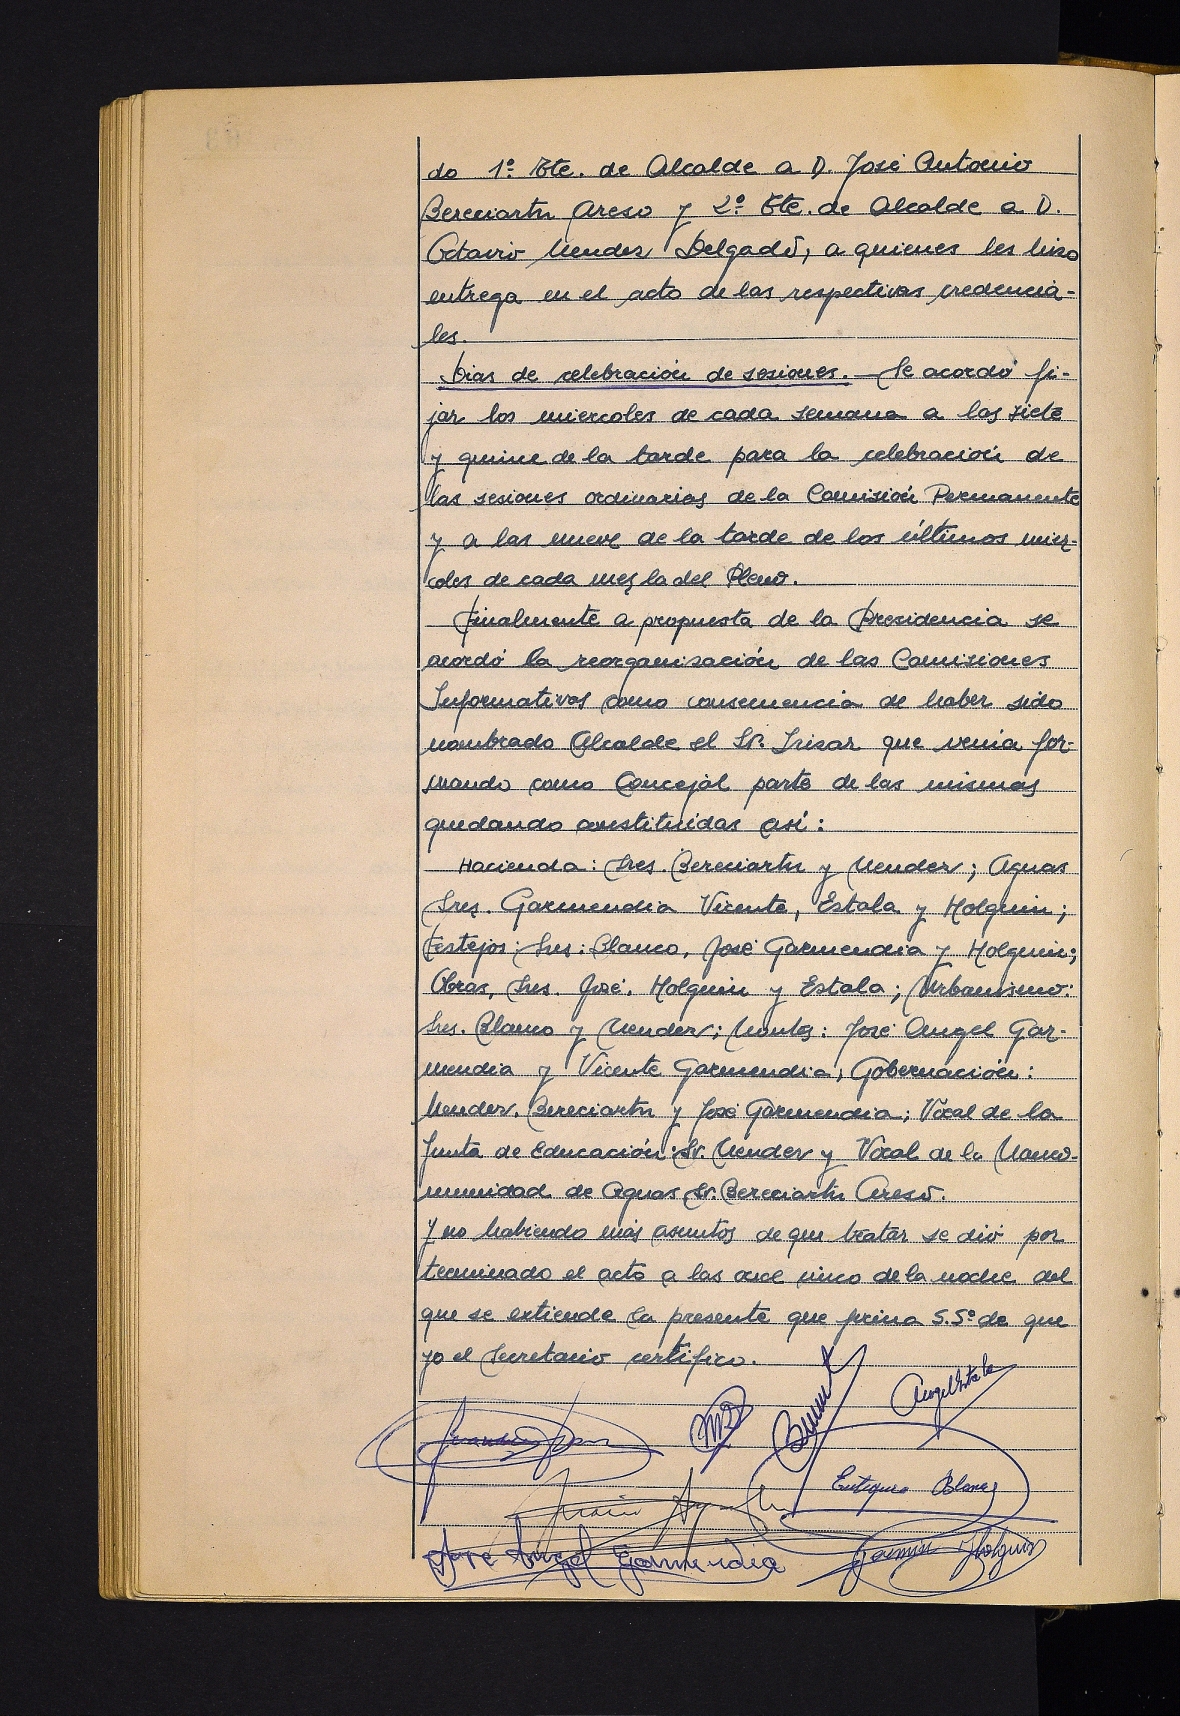 do 1º Tte. de Alcalde a D. José Antonio
Bereciartu Areso y 2º Tte. de Alcalde a D.
Octavio Mendez Delgado, a quienes les hizo
entrega en el acto de las respectivas credencia-
les.
Dias de celebración de sesiones. — Se acordó fi-
jar los miercoles de cada semana a las siete
y quince de la tarde para la celebración de
las sesiones ordinarias de la Comisión Permanente
y a las nueve de la tarde de los últimos mier-
coles de cada mes la del Pleno.
Finalmente a propuesta de la Presidencia se
acordó la reorganización de las Comisiones
Informativas como consecuencia de haber sido
nombrado Alcalde el Sr. Irizar que venia for-
mando como Concejal parte de las mismas
quedando constituidas asi:
Hacienda: Sres. Bereciartu y Mendez; Aguas
Sres. Garmendia Vicente, Estala y Holguin;
Festejos: Sres: Blanco, José Garmendia y Holguin;
Obras, Sres. José, Holguin y Estala; Urbanismo:
Sres. Blanco y Mendez; Montes: José Angel Gar-
mendia y Vicente Garmendia; Gobernación:
Mendez, Bereciartu y José Garmendia; Vocal de la
Junta de Educación: Sr. Mendez y Vocal de la Manco-
munidad de Aguas Sr. Bereciartu Areso.
Y no habiendo más asuntos de que tratar se dió por
terminado el acto a las once cinco de la noche del
que se extiende la presente que firma S.Sª de que
yo el Secretario certifico.
Angel Estala
Eutiquio Blanco
José Angel Garmendia
Holguin